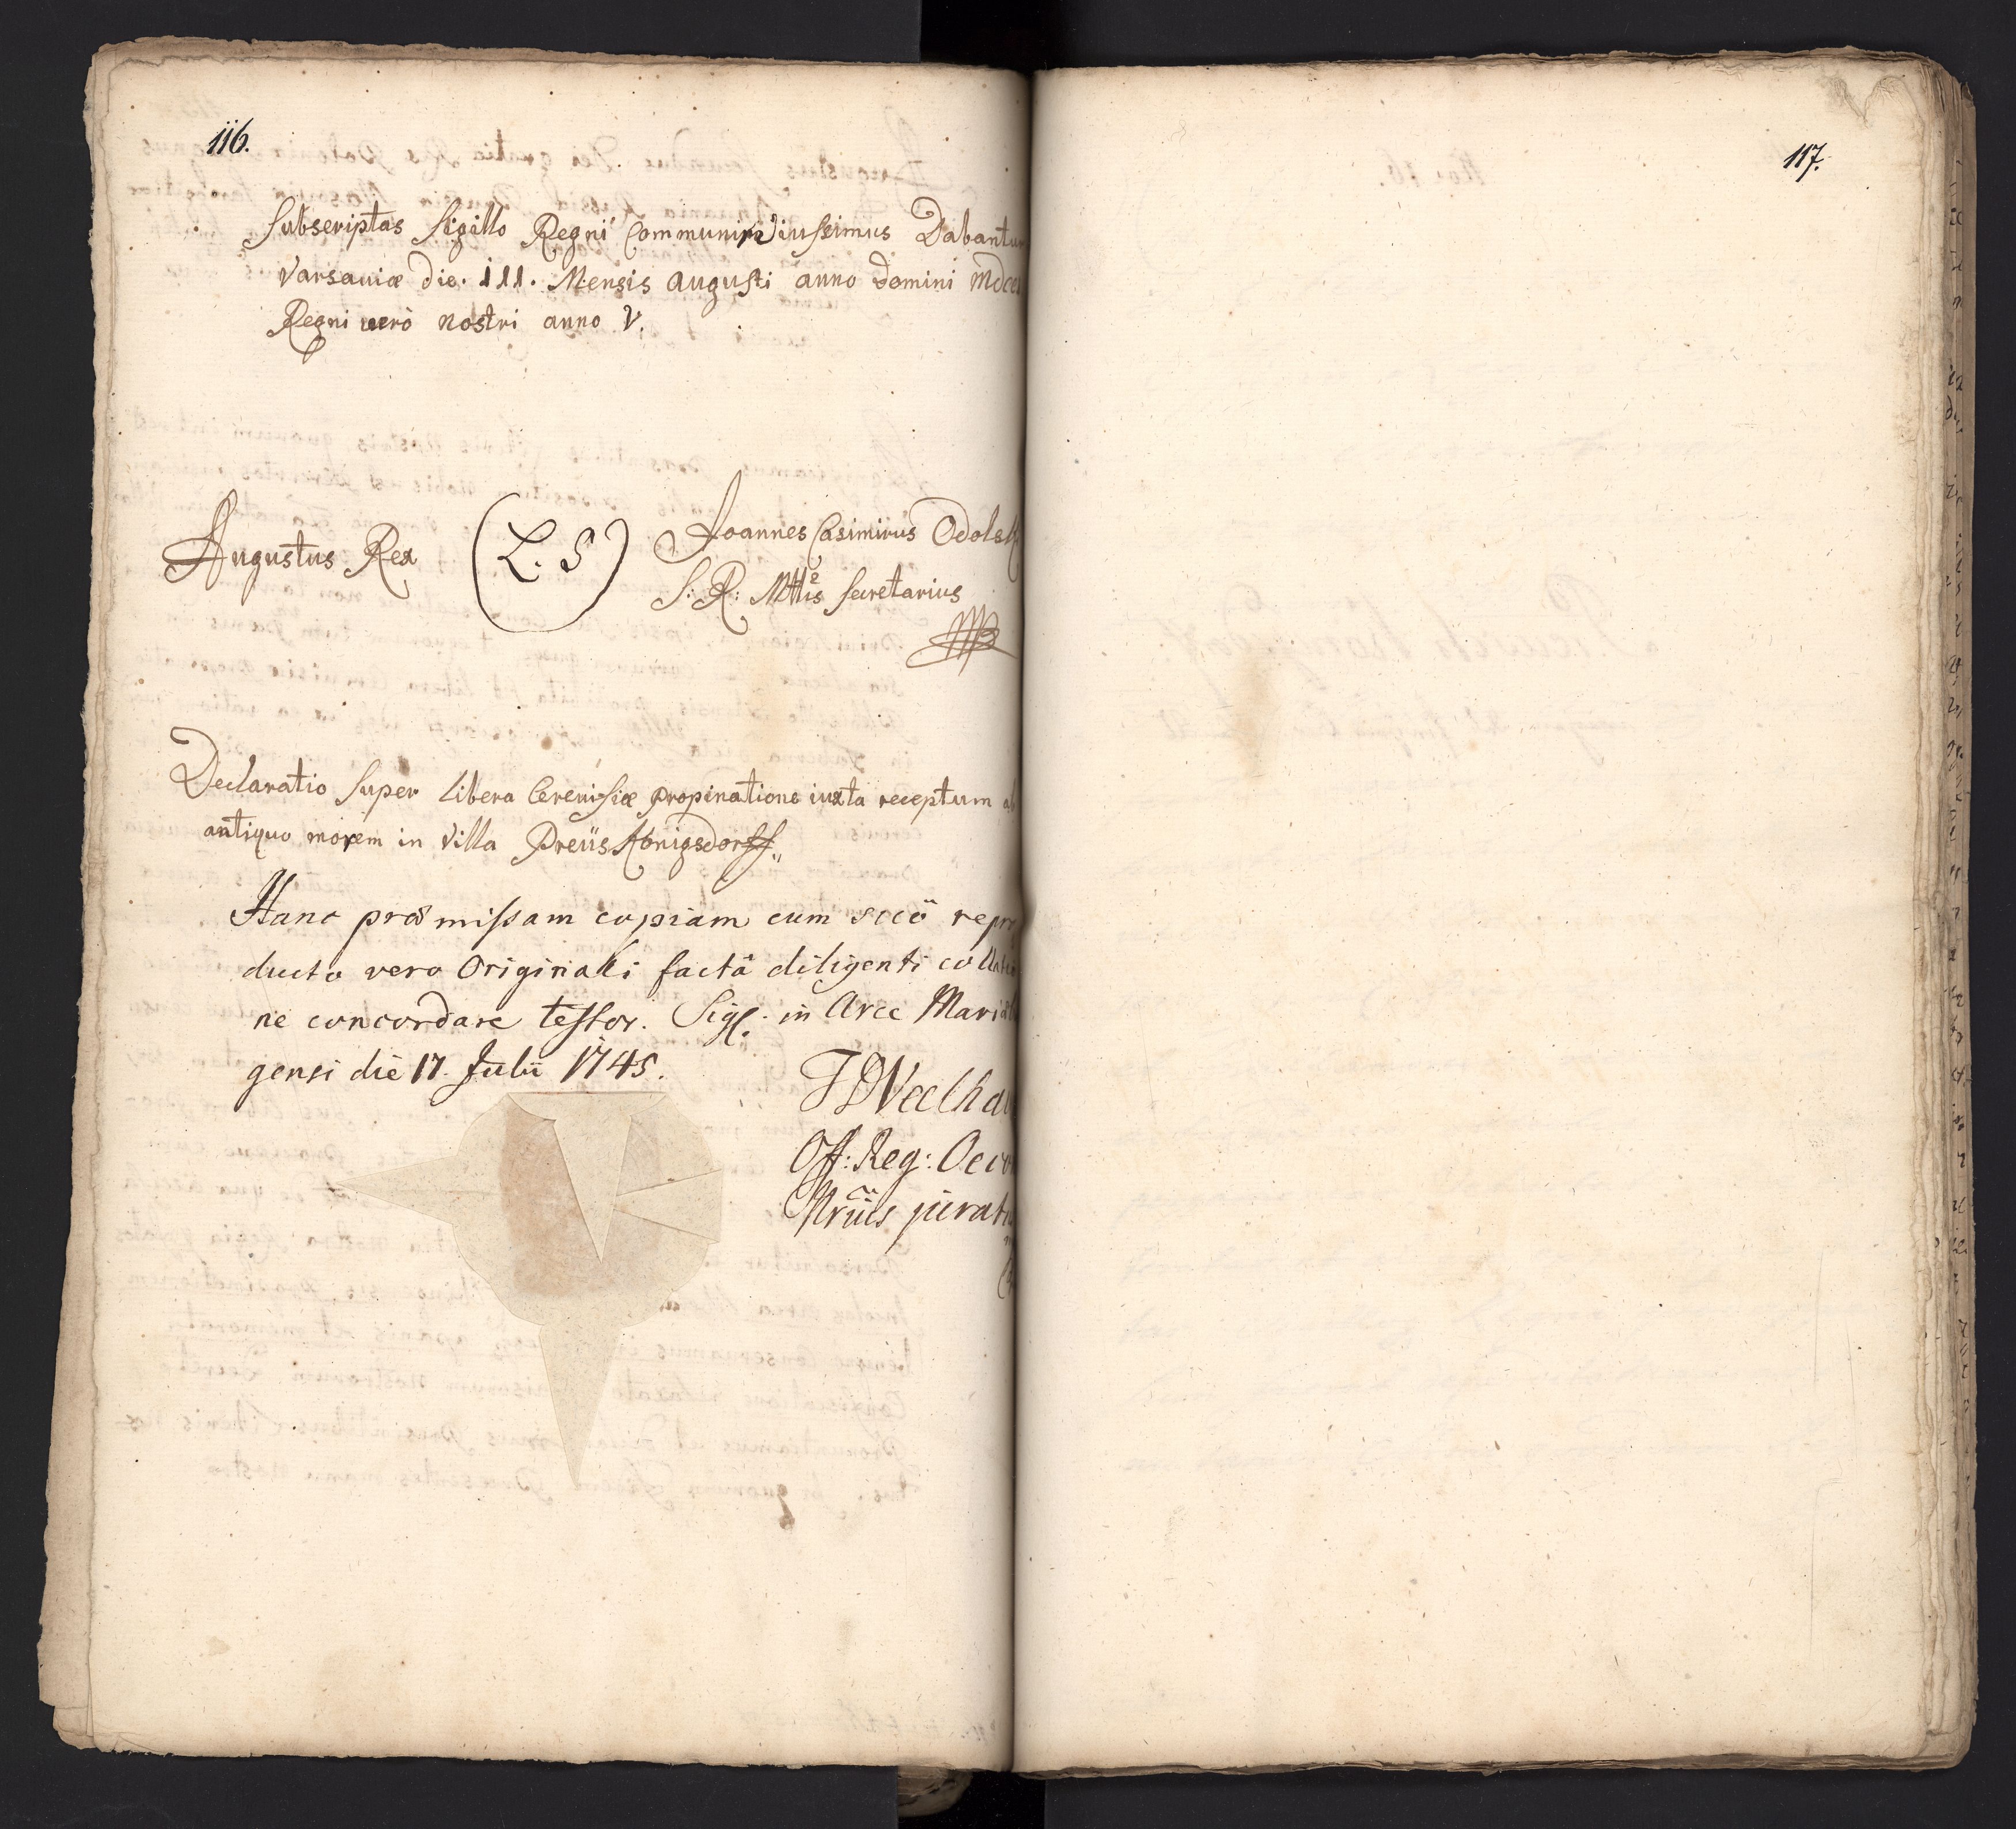 116.
Subscriptas Sigillo Regni Communire iussimus Dabantur
Varsaviæ die. III. Mensis Augusti anno Domini MDCC
Regni verò nostri anno V.
Augustus Rex
(L. S)
Joannes Casimirus Odolsk
S: R: Mttis Secretarius
Declaratio Super libera Cerevisiæ propinatione iuxta receptum ab
antiquo morem in Villa Preüs Königsdorff
Hanc præmissam copiam cum sccü repro
ducto vero Originali factâ diligenti collatio
ne concordare testor. Sigl. in Arce Mariæb
gensi die 17. Julii 1745.
Off: Reg: Oeco
jurat
117.